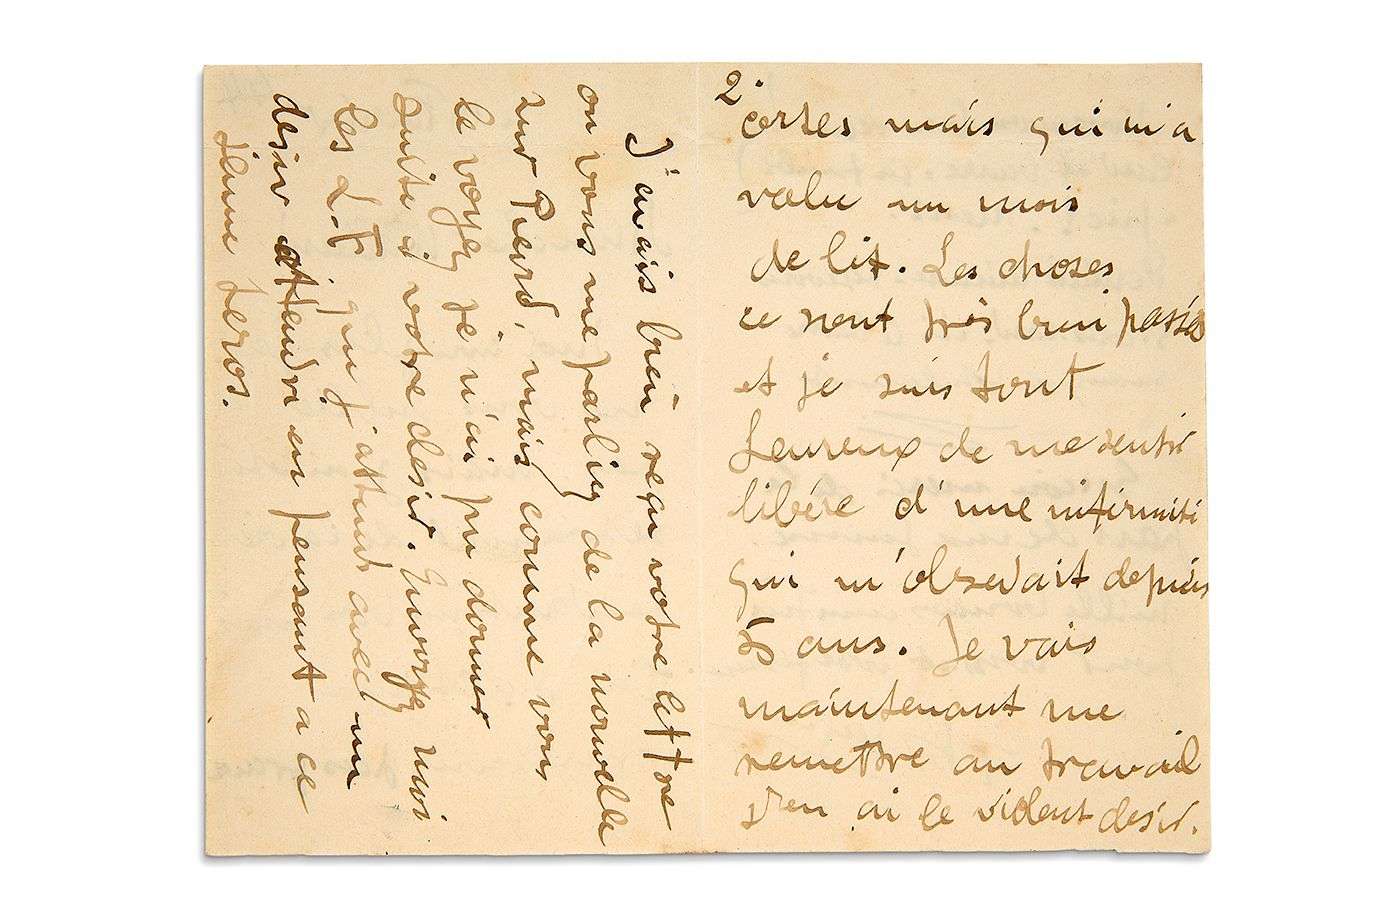 2°
certes mais qui m'a
valu un mois
de lit. Les choses
ce sont très bien passés
et je suis tout
heureux de me sentir
libéré d'une infirmité
qui m'obsedait depuis
5 ans. Je vais
maintenant me
remettre au travail
J'en ai le violent desir.
J'avais bien reçu votre lettre
ou vous me parliez de la nouvelle
sur Pierd, mais comme vous
le voyez je n'ai pu donner
suite à votre desir. Envoyez moi
les L.F que j'attends avec un
desir attendri en pensant a ce